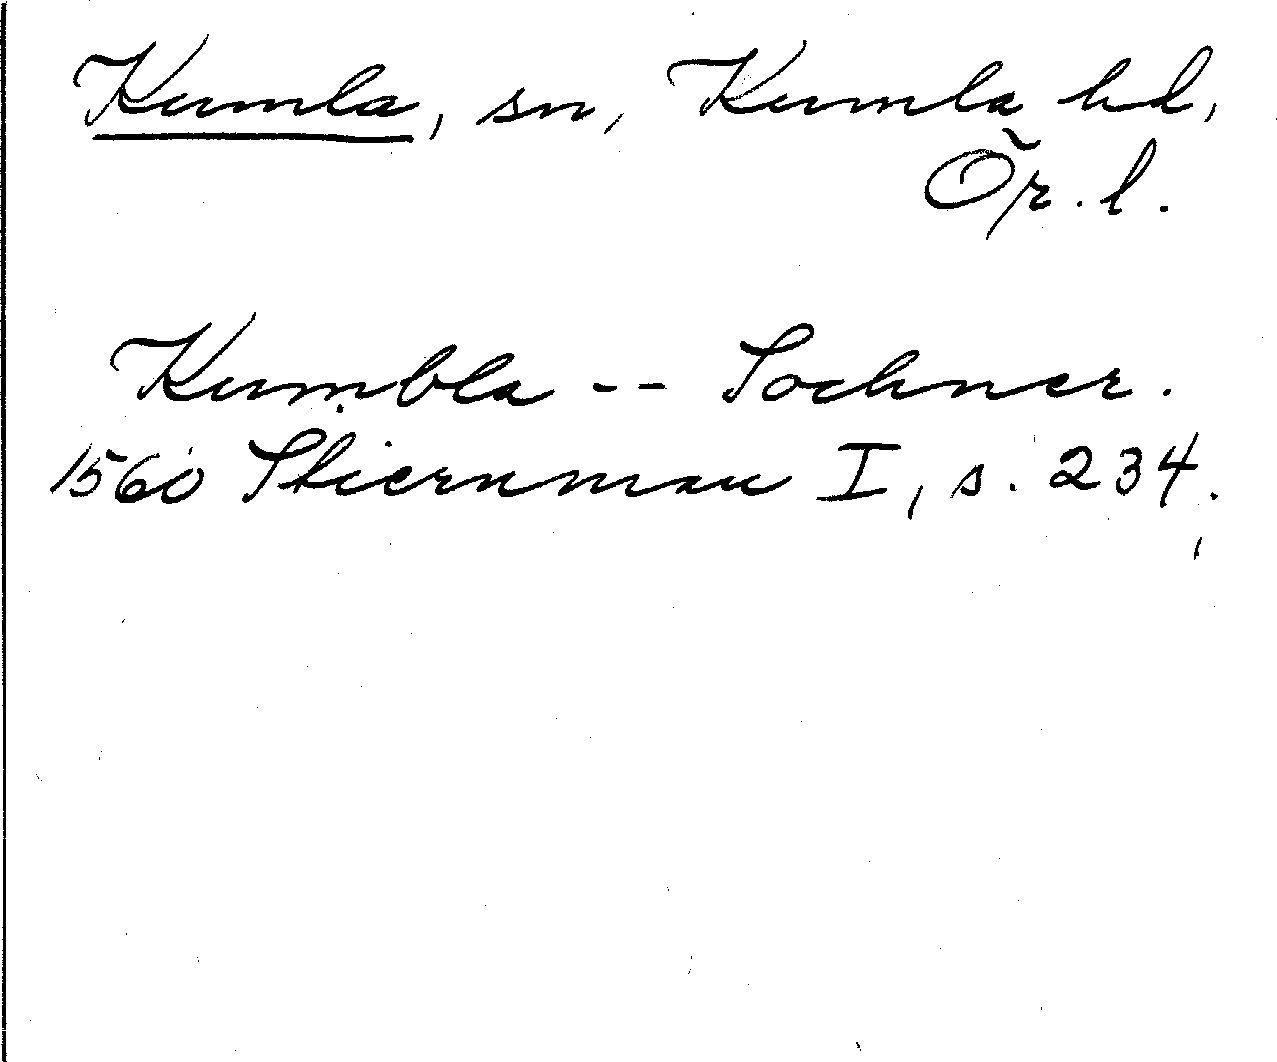 Kumla, sn, Kumla hd,
Ör. l.
Kumbla -- Sochner.
1560 Stiernman I, s. 234.